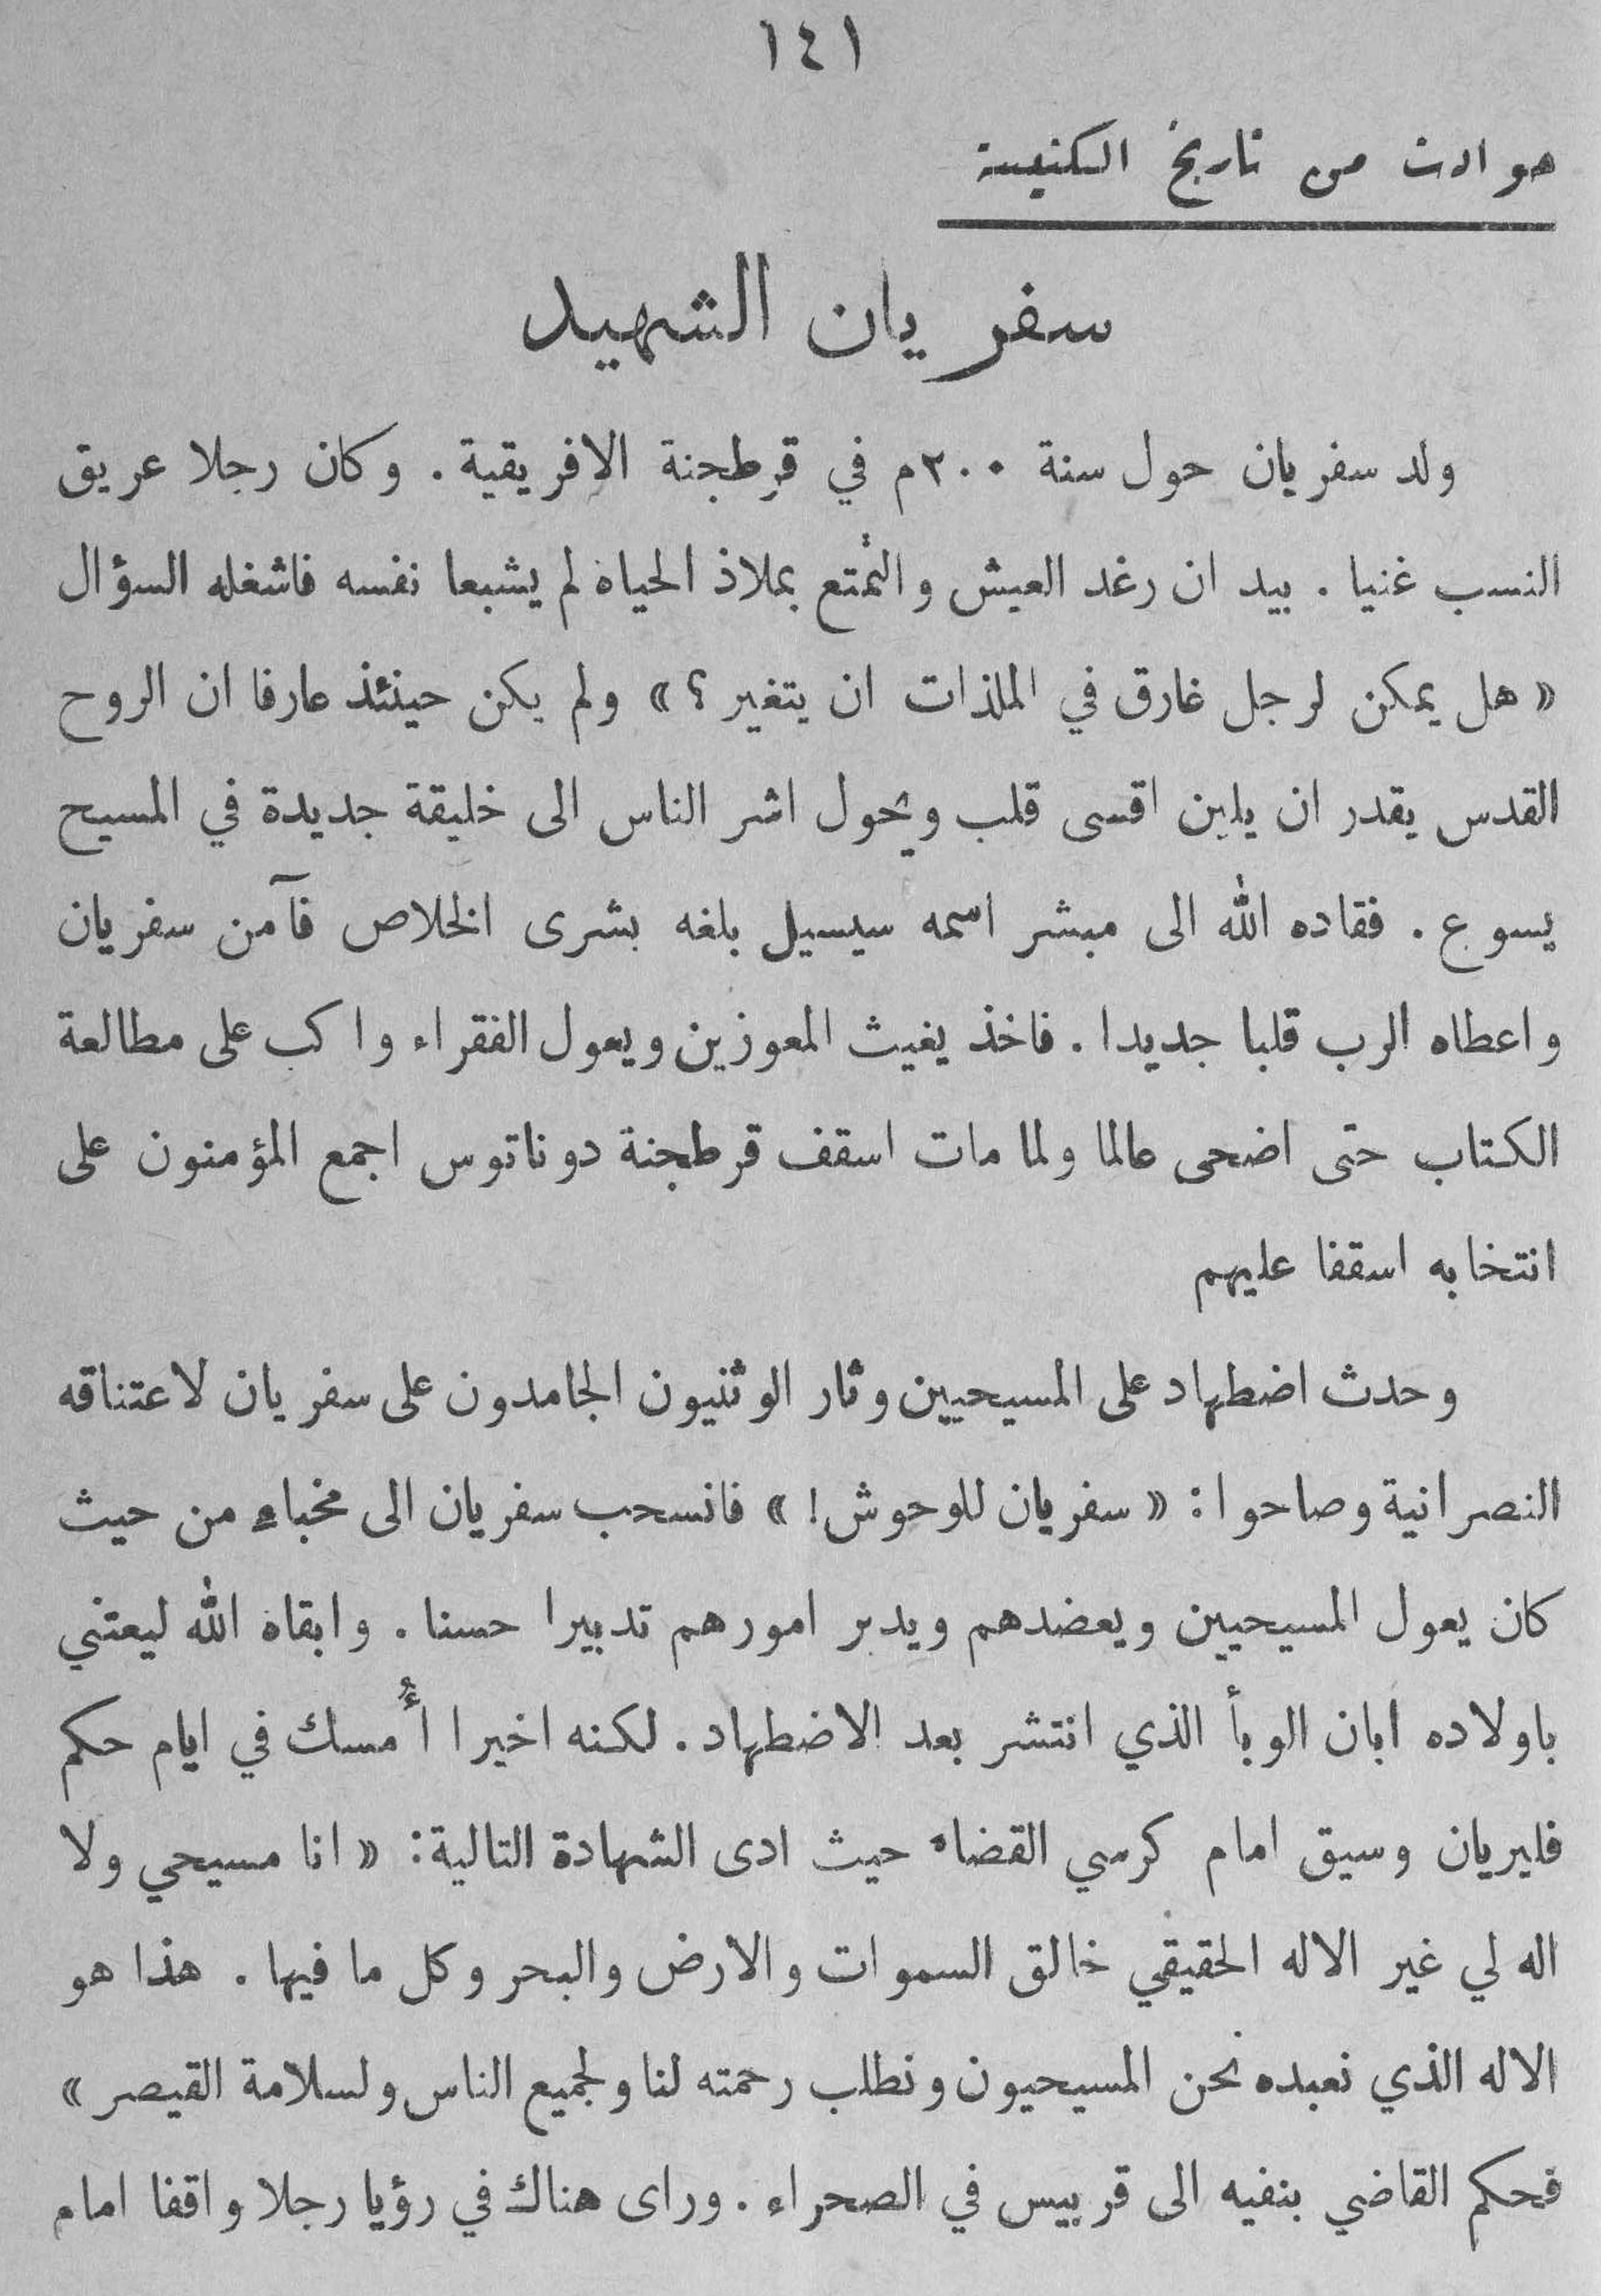 ١٤١
حوادث من تاريخ الكنيسة
سفريان الشهيد
ولد سفريان حول سنة ٢٠٠م في قرطجنة الافريقية . وكان رجلا عريق
النسب غنيا . بيد ان رغد العيش والتمتع بملاذ الحياة لم يشبعا نفسه فاشغله السؤال
« هل يمكن لرجل غارق في الملذات ان يتغير ؟ » ولم يكن حينئذ عارفا ان الروح
القدس يقدر ان يلين اقسى قلب ويحول اشر الناس الى خليقة جديدة في المسيح
يسوع . فقاده الله الى مبشر اسمه سيسيل بلغه بشرى الخلاص فآمن سفريان
واعطاه الرب قلبا جديدا . فاخذ يغيث المعوزين ويعول الفقراء واكب على مطالعة
الكتاب حتى اضحى عالما ولما مات اسقف قرطجنة دوناتوس اجمع المؤمنون على
انتخابه اسقفا عليهم
وحدث اضطهاد على المسيحيين وثار الوثنيون الجامدون على سفريان لاعتناقه
النصرانية وصاحوا : « سفريان للوحوش ! » فانسحب سفريان الى مخباء من حيث
كان يعول المسيحيين ويعضدهم ويدبر امورهم تدبيرا حسنا . وابقاه الله ليعتني
باولاده ابان الوبأ الذي انتشر بعد الاضطهاد . لكنه اخيرا أُمسك في ايام حكم
فليريان وسيق امام كرسي القضاء حيث ادى الشهادة التالية : « انا مسيحي ولا
اله لي غير الاله الحقيقي خالق السموات والارض والبحر وكل ما فيها . هذا هو
الاله الذي نعبده نحن المسيحيون ونطلب رحمته لنا ولجميع الناس ولسلامة القيصر »
فحكم القاضي بنفيه الى قربيس في الصحراء . وراى هناك في رؤيا رجلا واقفا امام